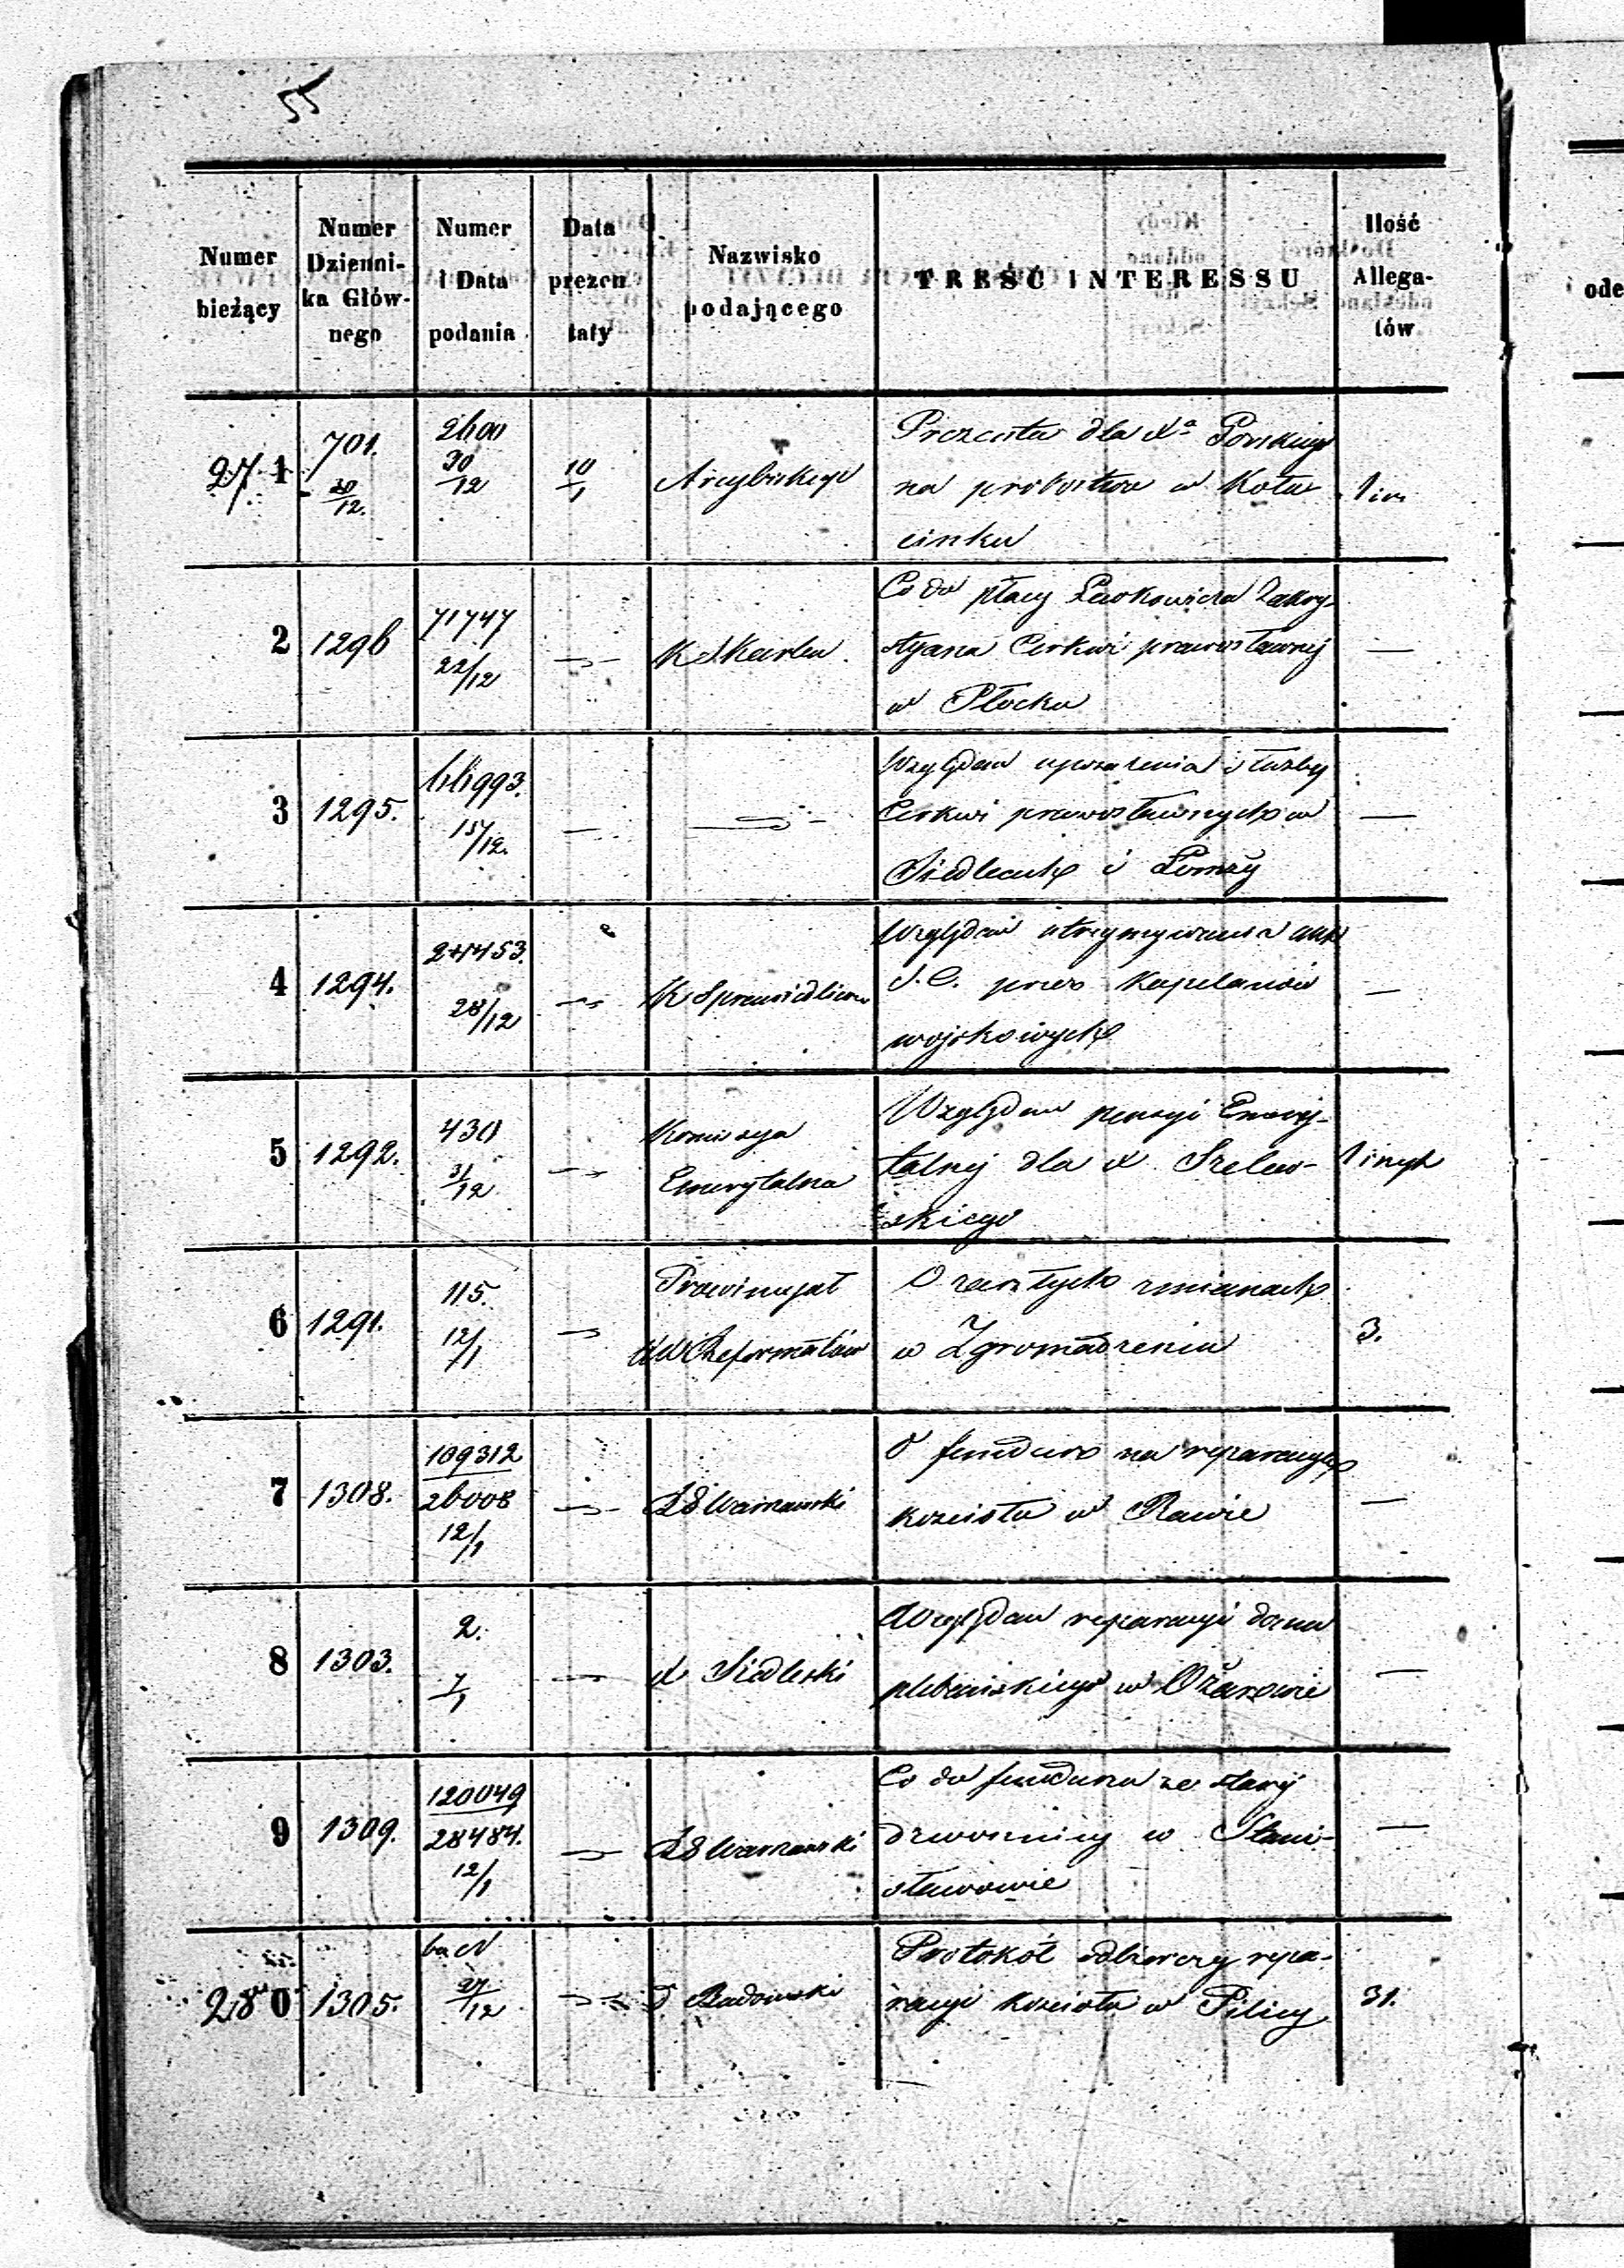 55
Numer bieżący
Numer Dzienni-ka Głów-nego
Numer i Data podania
Data prezen taty
Nazwisko podającego
TREŚĆ INTERESSU
Ilość Allega-tów
271
701.
30/12.
2600
30/12
10/1
Arcybiskup
Prezenta dla Xa Porskiego
na probostwo w Koła
cinku
1 in.
2
1296
71747
22/12
K Skarbu.
Co do płacy Lewkowicza Zakry-
styana Cerkwi prawosławnej
w Płocku
—
3
1295.
66993.
15/12.
—
Względem uposażenia służby
Cerkwi prawosławnych w
Siedlcach i Łomży
—
4
1294.
24453.
28/12
K Sprawiedliwo
Względem utrzymywania akt
S. C. przez Kapelanów
wojskowych
—
5
1292.
430
31/12
Komissya
Emerytalna
Względem pensyi Emery-
talnej dla X. Szelew-
skiego
1 inych
6
1291.
115.
12/1
Prowincyał
XX Reformatów
O zaszłych zmianach
w Zgromadzeniu
3.
7
1308.
109312
26008
12/1
RG Warszawski
O fundusz na reparacyę
kościoła w Rawie
—
8
1303.
2.
7/1
X Siedlecki
Względem reparacyi domu
plebańskiego w Ożarowie
—
9
1309.
120049
28484.
12/1
RG Warszawski
Co do funduszu ze starej
dzwonnicy w Stani-
sławowie
—
280
1305.
bez N
27/12
Badowski
Protokół odbiorczy repa-
racyi kościoła w Pilicy
31.